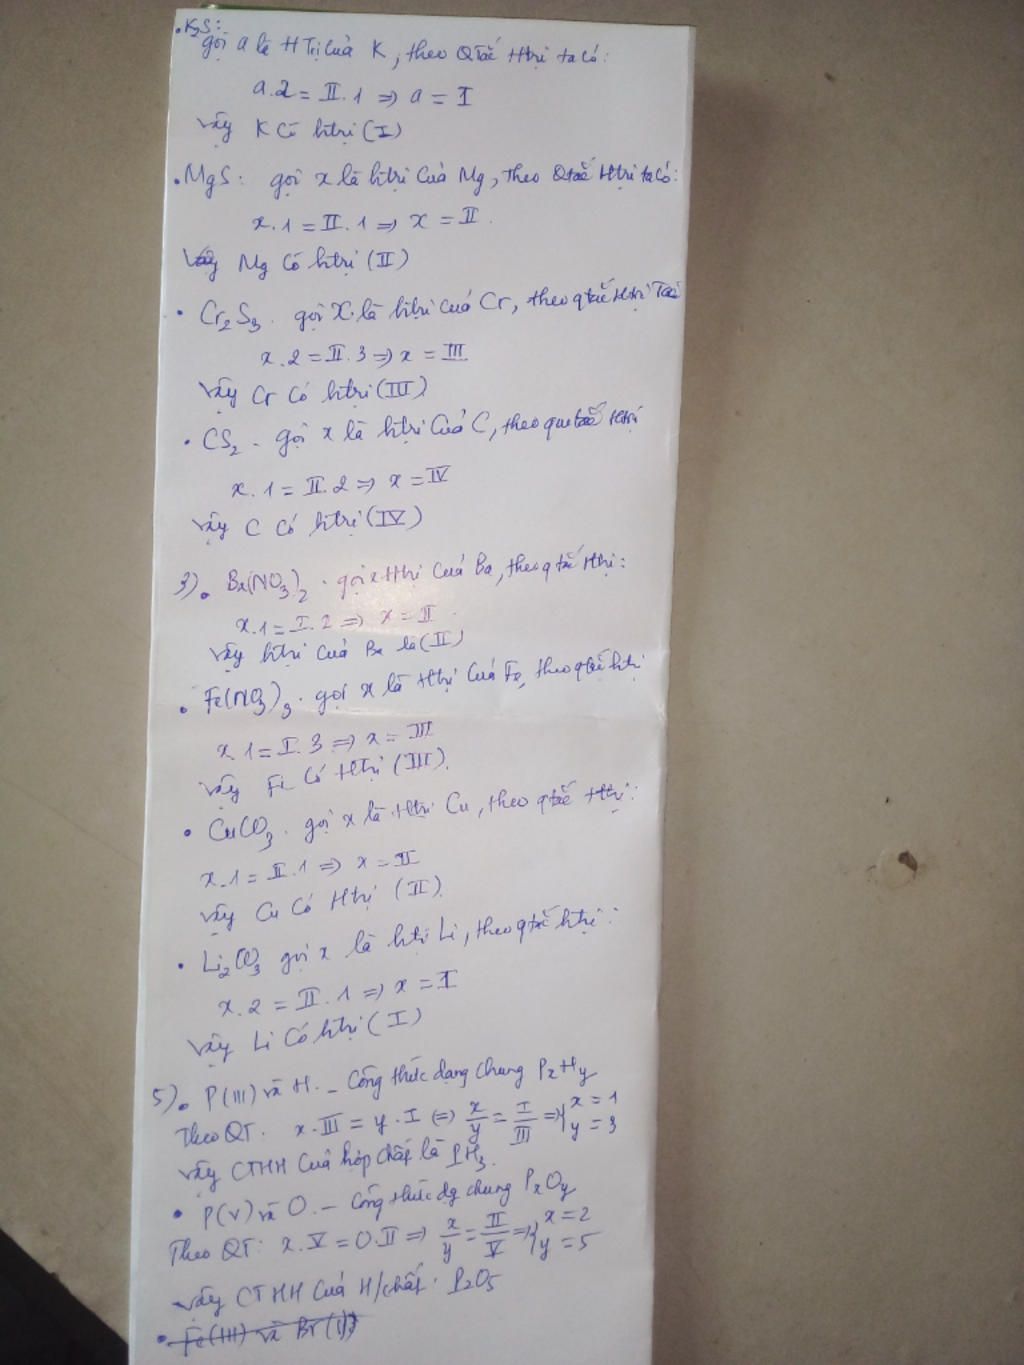 • K2S:
gọi a là H Trị của K, theo QTắc Htrị ta có:
a.2 = II.1 => a = I
Vậy K có htrị (I)
• MgS: gọi x là htrị của Mg, theo Qtắc Htrị ta có:
x.1 = II.1 => x = II.
Vậy Mg có htrị (II)
• Cr2S3. gọi x là htrị của Cr, theo qtắc Htrị Ta có
x.2 = II.3 => x = III
Vậy Cr có htrị (III)
• CS2 - gọi x là htrị của C, theo qui tắc Htrị
x.1 = II.2 => x = IV
Vậy C có htrị (IV)
3) • Ba(NO3)2. gọi x Htrị của Ba, theo qtắc Htrị:
x.1 = I.2 => x = II.
Vậy htrị của Ba là (II)
• Fe(NO3)3. gọi x là Htrị của Fe, theo qtắc htrị
x.1 = I.3 => x = III
Vậy Fe có Htrị (III).
• CuCO3. gọi x là Htrị Cu, theo qtắc Htrị:
x.1 = II.1 => x = II
Vậy Cu có Htrị (II).
• Li2CO3 gọi x là htri Li, theo qtắc htrị:
x.2 = II.1 => x = I
Vậy Li có htrị (I)
5) • P(III) và H. - Công thức dạng chung PxHy
Theo QT: x.III = y.I <=> x/y = I/III => { x = 1 y = 3
Vậy CTHH của hợp chất là PH3.
• P(V) và O. - Công thức dg chung PxOy
Theo QT: x.V = O.II => x/y = II/V => { x = 2 y = 5
Vậy CTHH của H/chất. P2O5
• Fe(III) và Br(I)